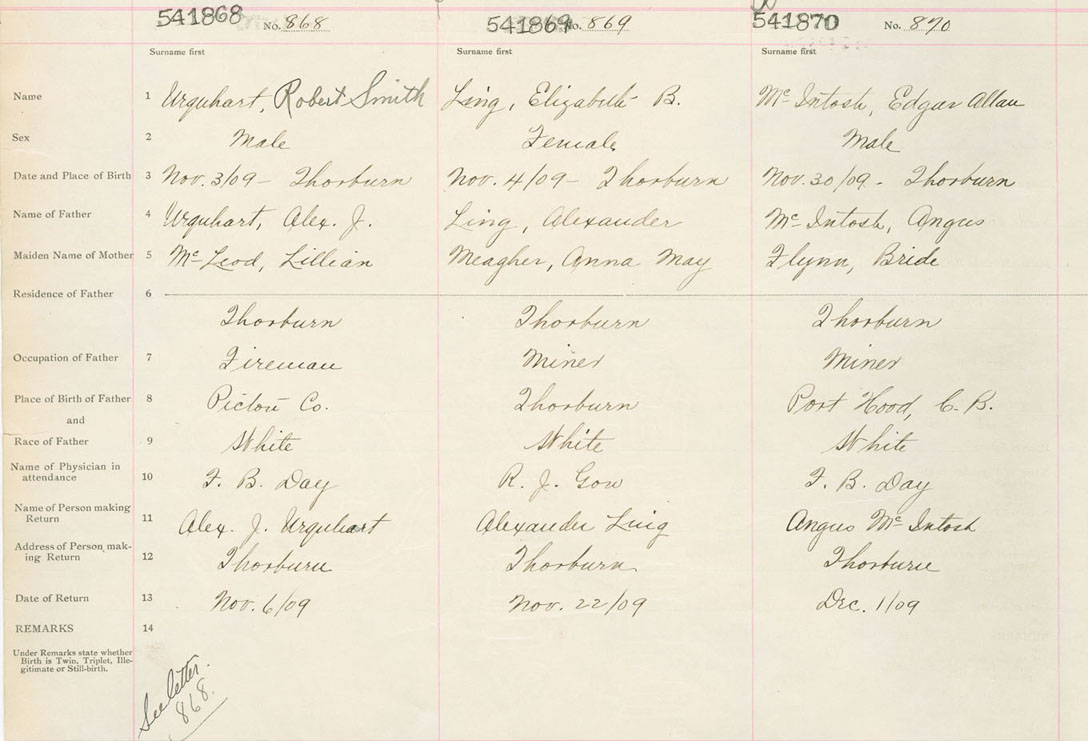 541868 No. 868 541869 No. 869 541870 No. 870
Surname first Surname first Surname first
Name 1 Urquhart, Robert Smith Ling, Elizabeth B. Mc Intosh, Edgar Allan
Sex 2 Male Female Male
Date and Place of Birth 3 Nov. 3/09 - Thorburn Nov. 4/09 - Thorburn Nov. 30/09 - Thorburn
Name of Father 4 Urquhart, Alex. J. Ling, Alexander Mc Intosh, Angus
Maiden Name of Mother 5 Mc Leod, Lillian Meagher, Anna May Flynn, Bride
Residence of Father 6
Thorburn Thorburn Thorburn
Occupation of Father 7 Fireman Miner Miner
Place of Birth of Father 8 Pictou Co. Thorburn Port Hood, C. B.
and
Race of Father 9 White White White
Name of Physician in
attendance 10 F. B. Day R. J. Gow F. B. Day
Name of Person making
Return 11 Alex. J. Urquhart Alexander Ling Angus Mc Intosh
Address of Person mak-
ing Return 12 Thorburn Thorburn Thorburn
Date of Return 13 Nov. 6/09 Nov. 22/09 Dec. 1/09
REMARKS 14
Under Remarks state whether
Birth is Twin, Triplet, Ille-
gitimate or Still-birth.
See letter.
868.